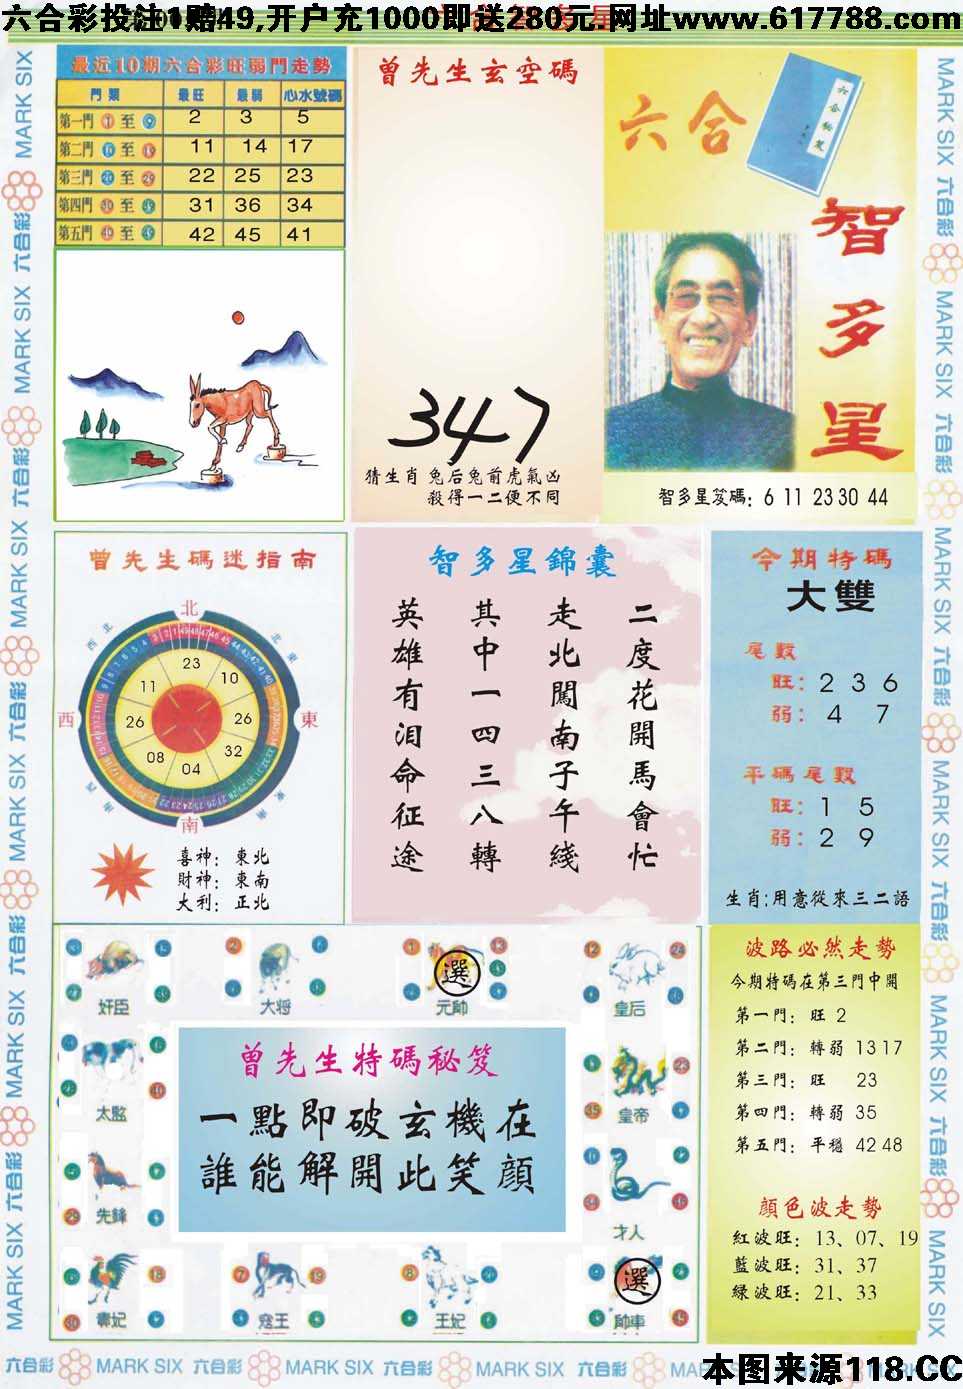 六合彩投注1赔49,开户充1000即送280元.网址www.617788.com
最近10期六合彩旺弱門走勢
門類 最旺 最弱 心水號碼
第一門 1 至 9 2 3 5
第二門 至 11 14 17
第三門 20 至 29 22 25 23
第四門 30 至 31 36 34
第五門 40 至 42 45 41
曾先生玄空碼
347
猜生肖 兔后兔前虎氣凶
殺得一二便不同
六合
六合秘笈
智多星
智多星笈碼: 6 11 23 30 44
曾先生碼迷指南
北
西北
東北
23
11
10
西
26
26
東
08
32
04
西南
東南
南
喜神: 東北
財神: 東南
大利: 正北
智多星錦囊
二度花開馬會忙
走北闖南子午綫
其中一四三八轉
英雄有泪命征途
今期特碼
大雙
尾數
旺: 2 3 6
弱: 4 7
平碼尾數
旺: 1 5
弱: 2 9
生肖:用意從來三二語
奸臣
大将
選
元帥
皇后
太監
皇帝
先鋒
才人
貴妃
寇王
王妃
選
帥車
曾先生特碼秘笈
一點即破玄機在
誰能解開此笑顔
波路必然走勢
今期特碼在第三門中開
第一門: 旺 2
第二門: 轉弱 13 17
第三門: 旺 23
第四門: 轉弱 35
第五門: 平穩 42 48
顔色波走勢
紅波旺: 13、07、19
藍波旺: 31、37
緑波旺: 21、33
MARK SIX 六合彩 MARK SIX 六合彩 MARK SIX 六合彩 MARK SIX 六合彩 MARK SIX 六合彩 MARK SIX
MARK SIX 六合彩 MARK SIX 六合彩 MARK SIX 六合彩 MARK SIX 六合彩 MARK SIX 六合彩 MARK SIX
六合彩 MARK SIX 六合彩 MARK SIX 六合彩 MARK SIX
本图来源118.CC